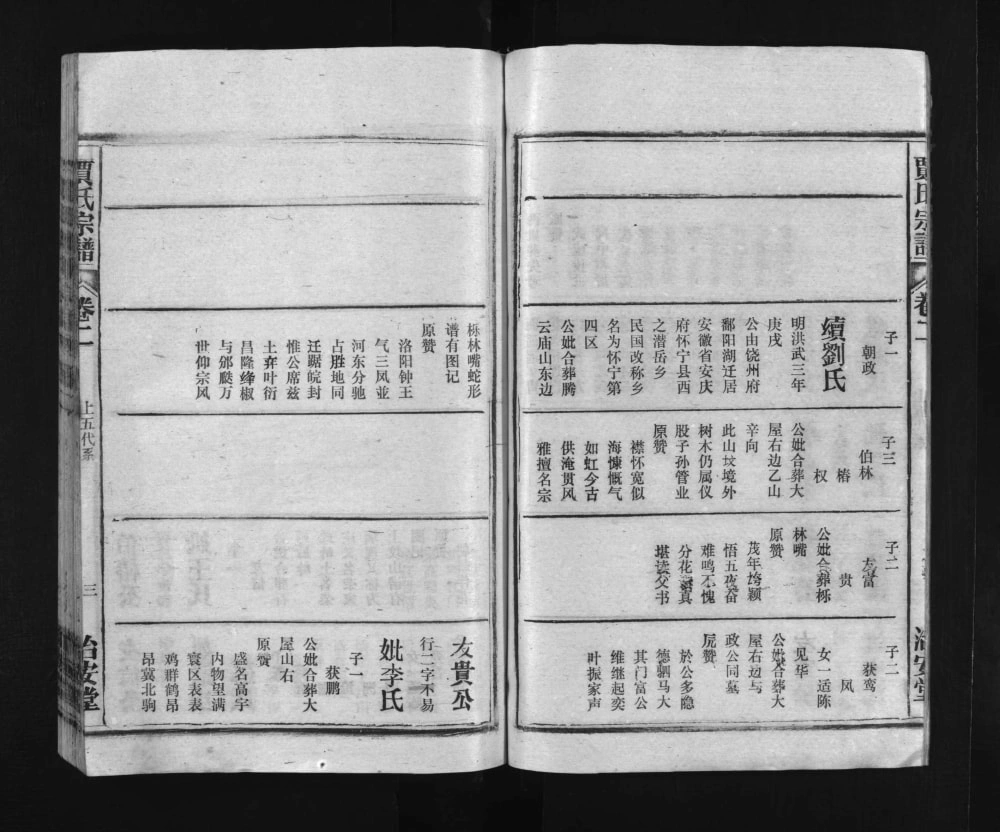 賈氏宗譜
卷二
治安堂
子一
朝政
續劉氏
明洪武三年
庚戌
公由饶州府
鄱阳湖迁居
安徽省安庆
府怀宁县西
之潜岳乡
民国改称乡
名为怀宁第
四区
公妣合葬腾
云庙山东边
子三
伯林
椿
权
公妣合葬大
屋右边乙山
辛向
此山坟境外
树木仍属仪
股子孙管业
原赞
襟怀宽似
海慷慨气
如虹今古
供淹贯风
雅擅名宗
子二
友富
贵
公妣合葬栎
林嘴
原赞
茂年垮颖
悟五夜奋
难鸣不愧
分花真
堪读父书
子二
获鸾
凤
女一适陈
见华
公妣合葬大
屋右边与
政公同墓
原赞
於公多隐
德驷马大
其门富公
维继起奕
叶振家声
栎林嘴蛇形
谱有图记
原赞
洛阳钟王
气三凤並
河东分驰
占胜地同
迁踞皖封
惟公席兹
土弃叶衍
昌隆绛椒
与邠瓞万
世仰宗风
友貴公
行二字不易
妣李氏
子一
获鹏
公妣合葬大
屋山右
原赞
盛名高宇
内物望满
寰区表表
鸡群鹤昂
昂冀北驹
賈氏宗譜
卷二
上五代系
三
治安堂